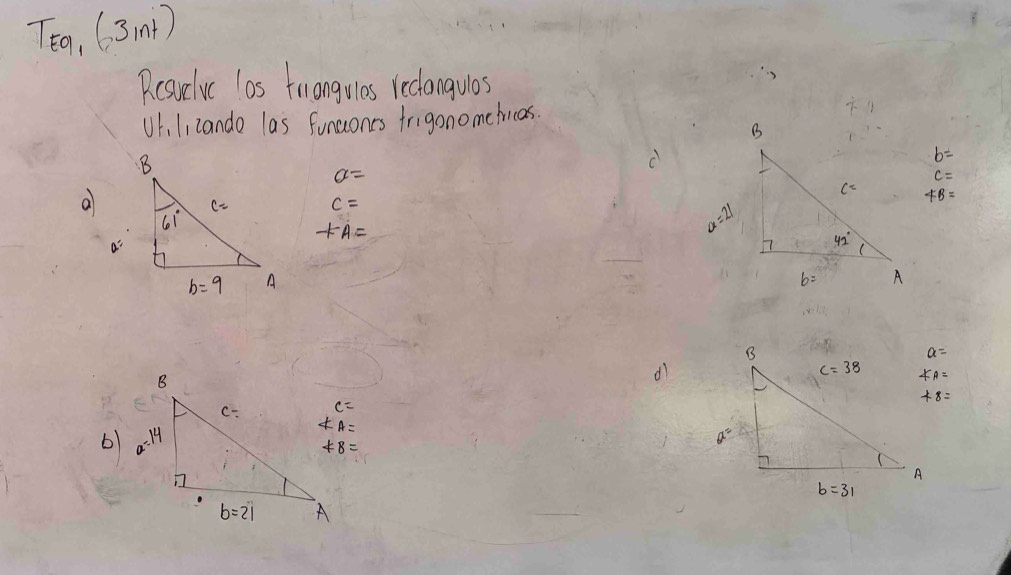 TEa, (3 int)
Resuelve los triangulos rectangulos
Utilizando las funciones trigonometricas.
a)
B
61°
c=
a=
b=9
A
a=
c=
∡A=
b)
B
c=
a=14
b=21
A
c=
∡A=
∡B=
c)
B
c=
a=21
42°
b=
A
b=
c=
∡B=
d)
B
c=38
a=
b=31
A
a=
∡A=
∡B=